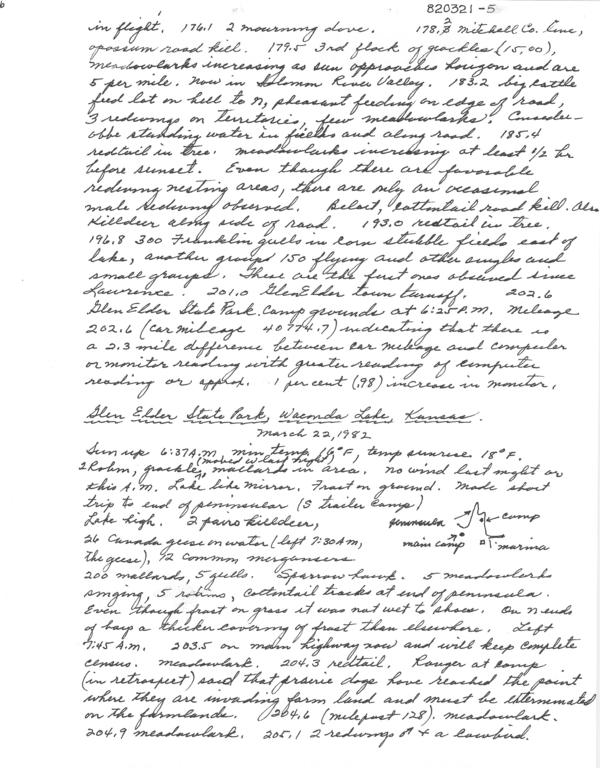 820321-5
in flight. 176.1 2 mourning dove. 178.8 2 Mitchell Co. line,
opossum road kill. 179.5 3rd flock of grackles (15,00),
meadowlarks increasing as sun approaches horizon and are
5 per mile. Now in Solomon River Valley. 183.2 big cattle
feed lot on hill to N, pheasant feeding on edge of road,
3 redwings on territories, few meadowlarks. Consider-
able standing water in fields and along road. 185.4
redtail in tree. Meadowlarks increasing at least 1/2 hr
before sunset. Even though there are favorable
redwing nesting areas, there are only an occasional
male redwing observed. Beloit, cottontail road kill. Also
Killdeer along side of road. 193.0 redtail in tree.
196.8 300 Franklin gulls in corn stubble fields east of
lake, another group 150 flying and other singles and
small groups. These are the first ones observed since
Lawrence. 201.0 Glen Elder town turnoff. 202.6
Glen Elder State Park. Camp grounds at 6:25 P.M. Mileage
202.6 (car mileage 40774.7) indicating that there is
a 2.3 mile difference between car mileage and computer
or monitor reading with greater reading of computer
reading or approx. 1 per cent (.98) increase in monitor.
Glen Elder State Park, Waconda Lake, Kansas.
March 22, 1982
Sun up 6:37 A.M, min temp 16°F, temp sunrise 18°F.
2 Robin, grackles (moved in last night), mallards in area. No wind last night or
this A.M. Lake like mirror. Frost on ground. Made short
trip to end of peninsular (S trailer camp)
Lake high. 2 pairs killdeer,
peninsula camp
26 Canada geese on water (left 7:30 AM,
main camp marina
the geese), 12 common mergansers
200 mallards, 5 gulls. Sparrow hawk. 5 meadowlarks
singing, 5 robins, cottontail tracks at end of peninsula.
Even though frost on grass it was not wet to shoes. On N ends
of bay a thicker covering of frost than elsewhere. Left
7:45 A.M. 203.5 on main highway now and will keep complete
census. Meadowlark. 204.3 redtail. Ranger at camp
(in retrospect) said that prairie dogs have reached the point
where they are invading farm land and must be exterminated
on the farmlands. 204.6 (milepost 128). meadowlark.
204.9 meadowlark. 205.1 2 redwings ♂ + a cowbird.